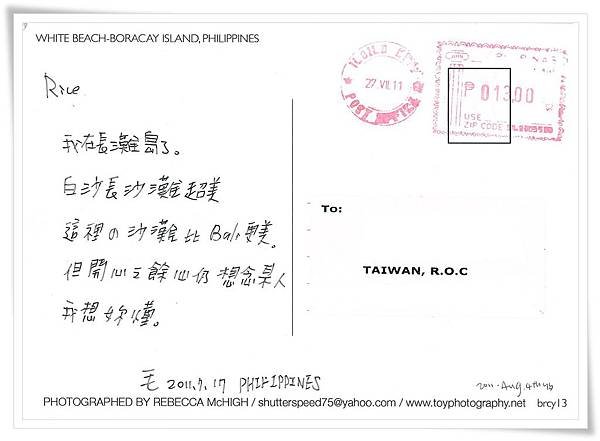 WHITE BEACH-BORACAY ISLAND, PHILIPPINES
Rice
我在長灘島了。
白沙長沙灘超美
這裡の沙灘比Bali更美。
但開心之餘心仍想念某人
我想妳懂。
毛 2011.7.17 PHILIPPINES
ILOILO CITY
27 VII 11
POST OFFICE
P 013.00
USE
ZIP CODE
To:
TAIWAN, R.O.C
2011. Aug. 4th
PHOTOGRAPHED BY REBECCA McHIGH / shutterspeed75@yahoo.com / www.toyphotography.net brcy13